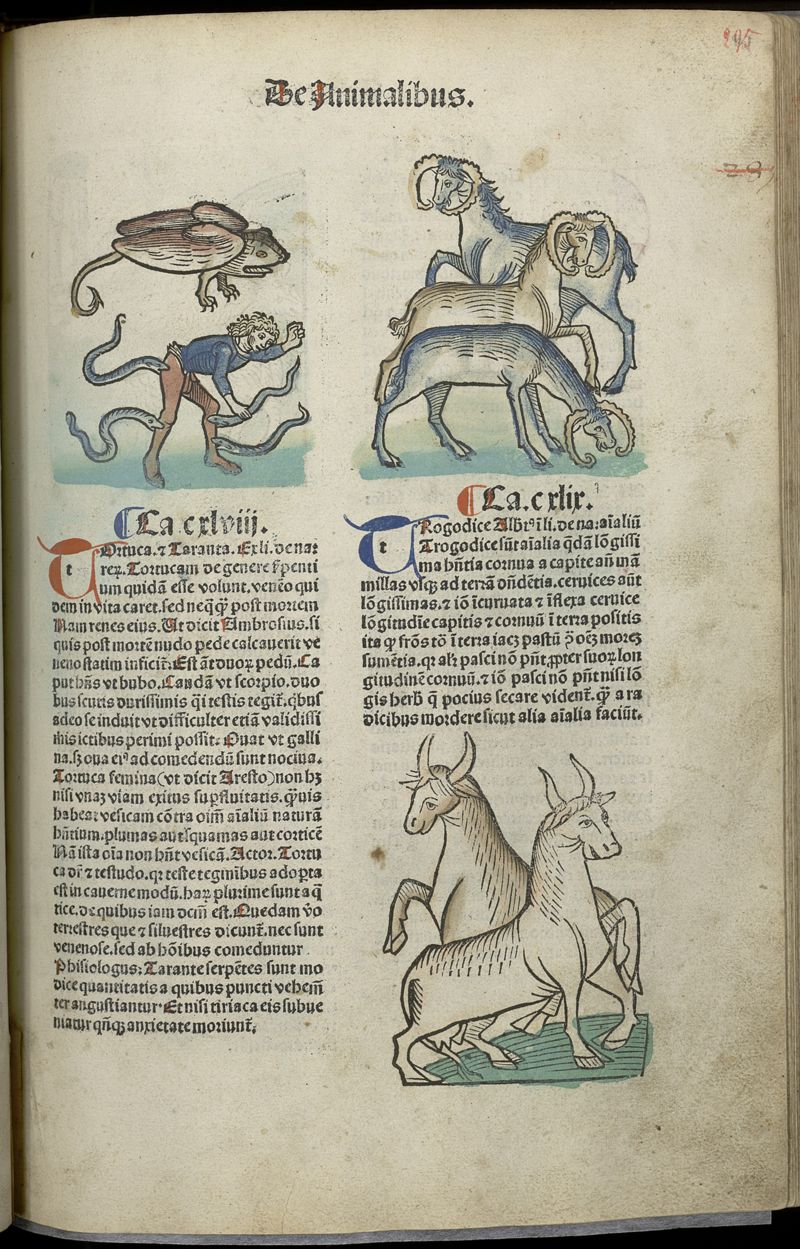 295
De Animalibus.
29
Ca. cxlviij.
TOrtuca. ⁊ Taranta. Ex li. de na⸗
reꝝ. Tortucam de genere ẜpenti
um quidā esse volunt. venēo qui
dem in vita caret. sed neqꝫ qꝫ post mortem
Nam renes eius. Ut dicit Ambrosius. si
quis post mortē nudo pede calcauerit ve
neno statim inficit᷑. Est āt duoꝝ pedū. Ca
put hn̄s vt bubo. Caudā vt scorpio. duo
bus scutis durissimis qͥ testis tegit᷑. qͥbus
adeo se induit vt difficulter etiā validissi
mis ictibus perimi possit. Ouat vt galli
na. sꝫ oua eiꝰ ad comedendū sunt nociua.
Tortuca femina (vt dicit Aresto) non hꝫ
nisi vnaꝫ viam exitus suꝑfluitatis. qͣuis
habeat vesicam cōtra oīm aīaliū naturā
hn̄tium. plumas aut squamas aut corticē
Nā ista oīa non hn̄t vesicā. Actor. Tortu
ca dr̄ ⁊ testudo. qꝛ teste tegminibus adoꝑta
est in camere modū. haꝝ plurime sunt aq̄
tice. de quibus iam dcm̄ est. Quedam v̊o
terrestres que ⁊ siluestres dicunt᷑. nec sunt
venenose. sed ab hōibus comeduntur
Phisiologus: Tarante serpētes sunt mo
dice quantitatis a quibus puncti vehem̄
ter angustiantur. Et nisi tiriaca eis subue
niatur qn̄qꝫ anxietate moriunt᷑.
Ca. cxlix.
TRogodice Albrꝰ ī li. de na: aīaliū
Trogodice sūt aīalia qͥdā lōgissi
ma hn̄tia cornua a capite añ ma
millas vsqꝫ ad terrā dn̄dētia. ceruices aūt
lōgissimas. ⁊ iō īcuruata ⁊ īflexa ceruice
lōgitudīe capitis ⁊ cornuū ī terra positis
ita qꝫ frōs tō ī terra iacꝫ pastū p̄ oēꝫ moreꝫ
sumētia. qꝛ alr̄ pasci nō pn̄t ꝓpter suoꝝ lon
gitudinē cornuū. ⁊ iō pasci nō pn̄t nisi lō
gis herb̄ q̄ pocius secare vident᷑. qͣꝫ a ra
dicibus mordere sicut alia aīalia faciūt.